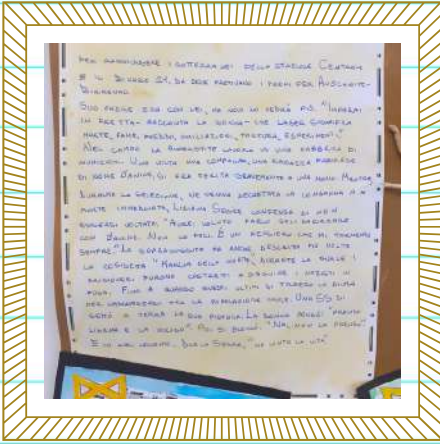 PER RAGGIUNGERE I SOTTERRANEI DELLA STAZIONE CENTRALE
E IL BINARIO 21, DA DOVE PARTIVANO I TRENI PER AUSCHWITZ-
BIRKENAU.
SUO PADRE ERA CON LEI, MA NON LO VEDRÀ PIÙ. "IMPARAI
IN FRETTA - RACCONTA LA DONNA - CHE LAGER SIGNIFICA
MORTE, FAME, FREDDO, UMILIAZIONI, TORTURA, ESPERIMENTI".
NEL CAMPO LA RAGAZZINA LAVORA IN UNA FABBRICA DI
MUNIZIONI. UNA VOLTA UNA COMPAGNA, UNA RAGAZZA FRANCESE
DI NOME JANINE, SI ERA FERITA GRAVEMENTE A UNA MANO. MENTRE,
DURANTE LA SELEZIONE, NE VENIVA DECRETATA LA CONDANNA A
MORTE IMMEDIATA, LILIANA SEGRE CONFESSA DI NON
ESSERSI VOLTATA: "AVREI VOLUTO
CON JANINE. NON LO FECI. È UN PENSIERO CHE MI TORMENTA
SEMPRE". LA SOPRAVVISSUTA HA ANCHE DESCRITTO PIÙ VOLTE
LA COSIDDETTA "MARCIA DELLA MORTE", DURANTE LA QUALE I
PRIGIONIERI FURONO COSTRETTI A SEGUIRE I NAZISTI IN
FUGA. FINO A QUANDO QUESTI ULTIMI SI TOLSERO LA DIVISA
PER TRA LA POPOLAZIONE CIVILE. UNA SS DI
GETTÒ A TERRA LA SUA PISTOLA. LA DONNA PENSÒ: "PRENDO
L'ARMA E LA UCCIDO". POI SI DISSE: "NO, NON LO FARÒ".
E IN QUEL MOMENTO, DICE LA SEGRE, "HA VINTO LA VITA"